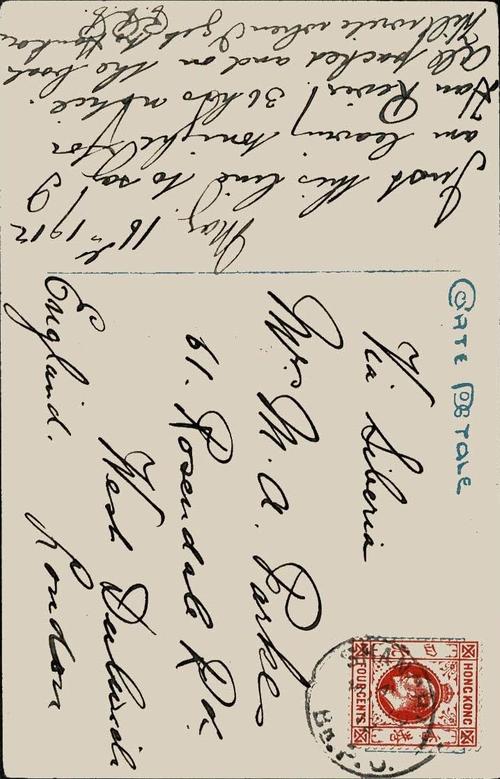 CARTE POSTALE
Via Siberia
Mrs. M. A. Parkes
61. Rosendale Rd.
West Dulwich
London
England.
May
16th 1912
Just this line to say I
am leaving tonight for
Han River! 36 hrs notice.
All packed and on the boat
Will write when I get to Hankow
HONG KONG
FOUR CENTS
SHANGHAI
Br. P. O.